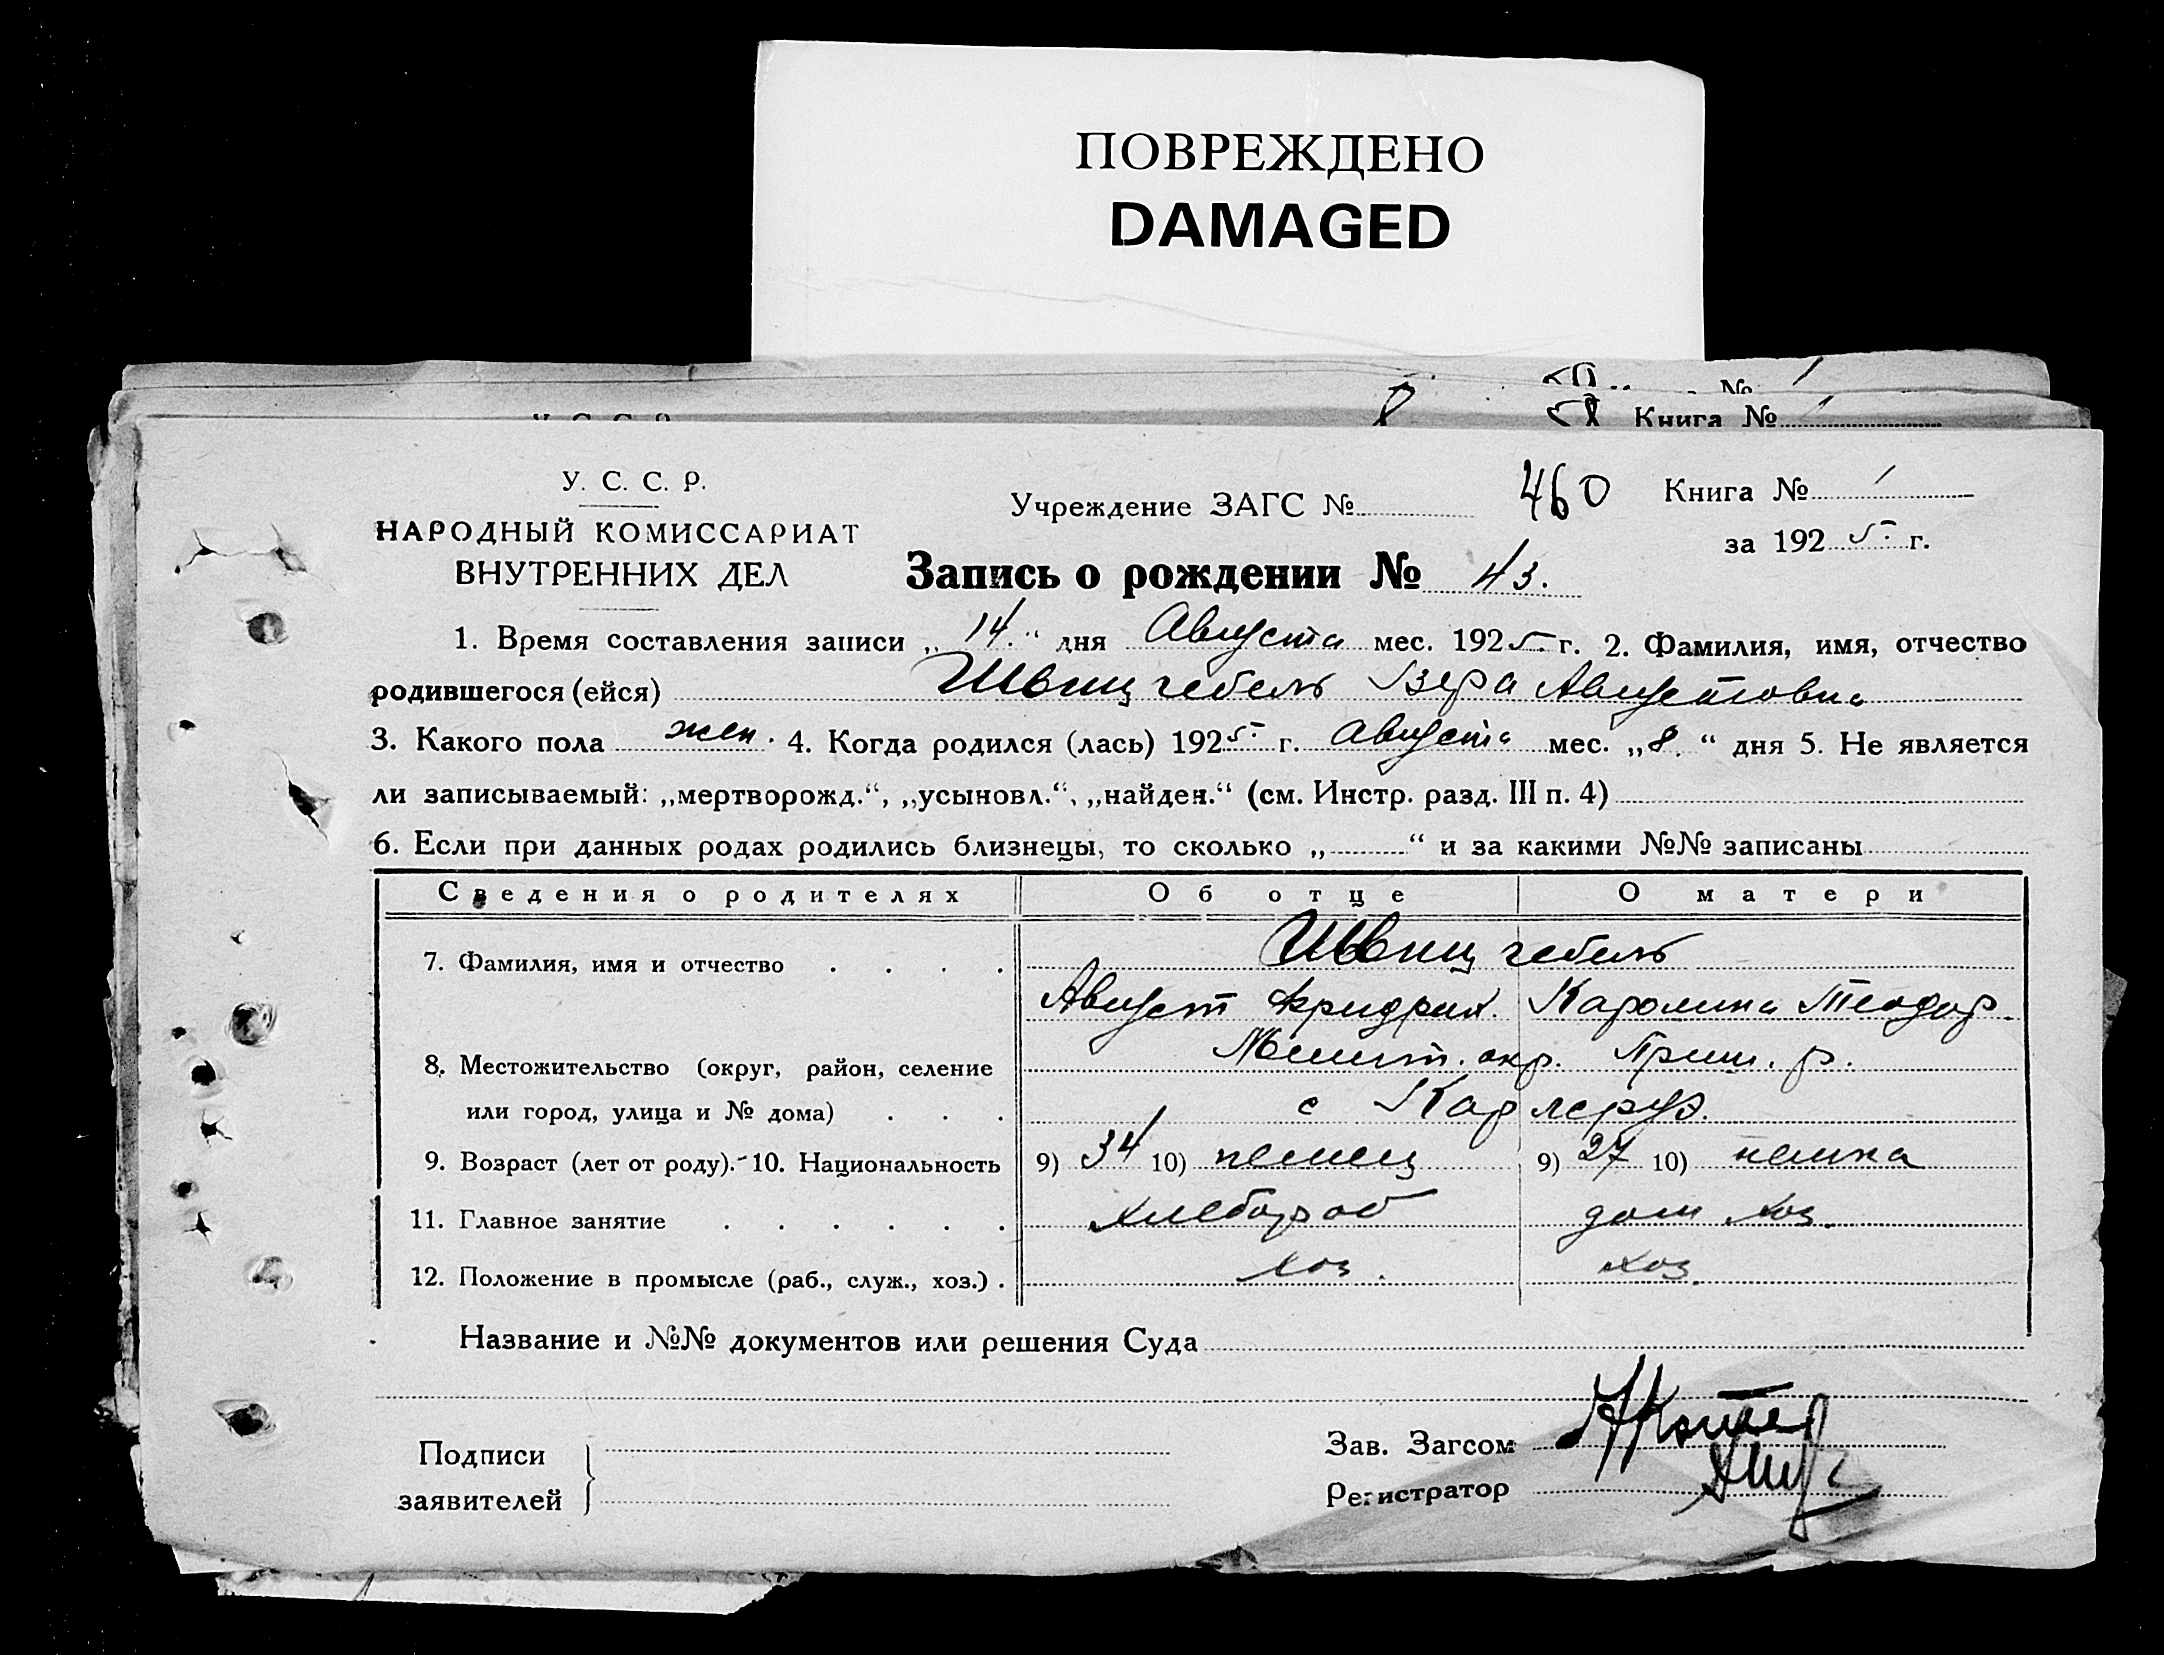 ПОВРЕЖДЕНО
DAMAGED
№
Книга № 1
У. С. С. Р.
Учреждение ЗАГС №
460
Книга № 1
НАРОДНЫЙ КОМИССАРИАТ
ВНУТРЕННИХ ДЕЛ
за 1925 г.
Запись о рождении № 43.
1. Время составления записи „14.“ дня Августа мес. 1925 г. 2. Фамилия, имя, отчество
родившегося (ейся) Швицгебель Вера Августовна
3. Какого пола жен. 4. Когда родился (лась) 1925 г. Августа мес. „8.“ дня 5. Не является
ли записываемый: „мертворожд.“, „усыновл.“, „найден.“ (см. Инстр. разд. III п. 4)
6. Если при данных родах родились близнецы, то сколько „ “ и за какими №№ записаны
Сведения о родителях Об отце О матери
7. Фамилия, имя и отчество Швицгебель
Август Фридрих. Каролина Теодор.
8. Местожительство (округ, район, селение Мелит. окр. Приш. р.
или город, улица и № дома) с Карлеруэ.
9. Возраст (лет от роду).-10. Национальность 9) 34 10) немец 9) 27 10) немка
11. Главное занятие хлебороб дом хоз.
12. Положение в промысле (раб., служ., хоз.) хоз. хоз.
Название и №№ документов или решения Суда
Подписи
заявителей
Зав. Загсом
Регистратор